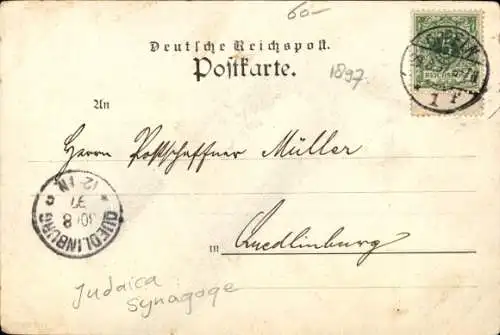 60—
Deutsche Reichspost.
Postkarte.
1897.
An
Herrn Postschaffner Müller
in Quedlinburg
QUEDLINBURG
10/8
97
12-1N.
* c
1 F
Judaica
Synagoge